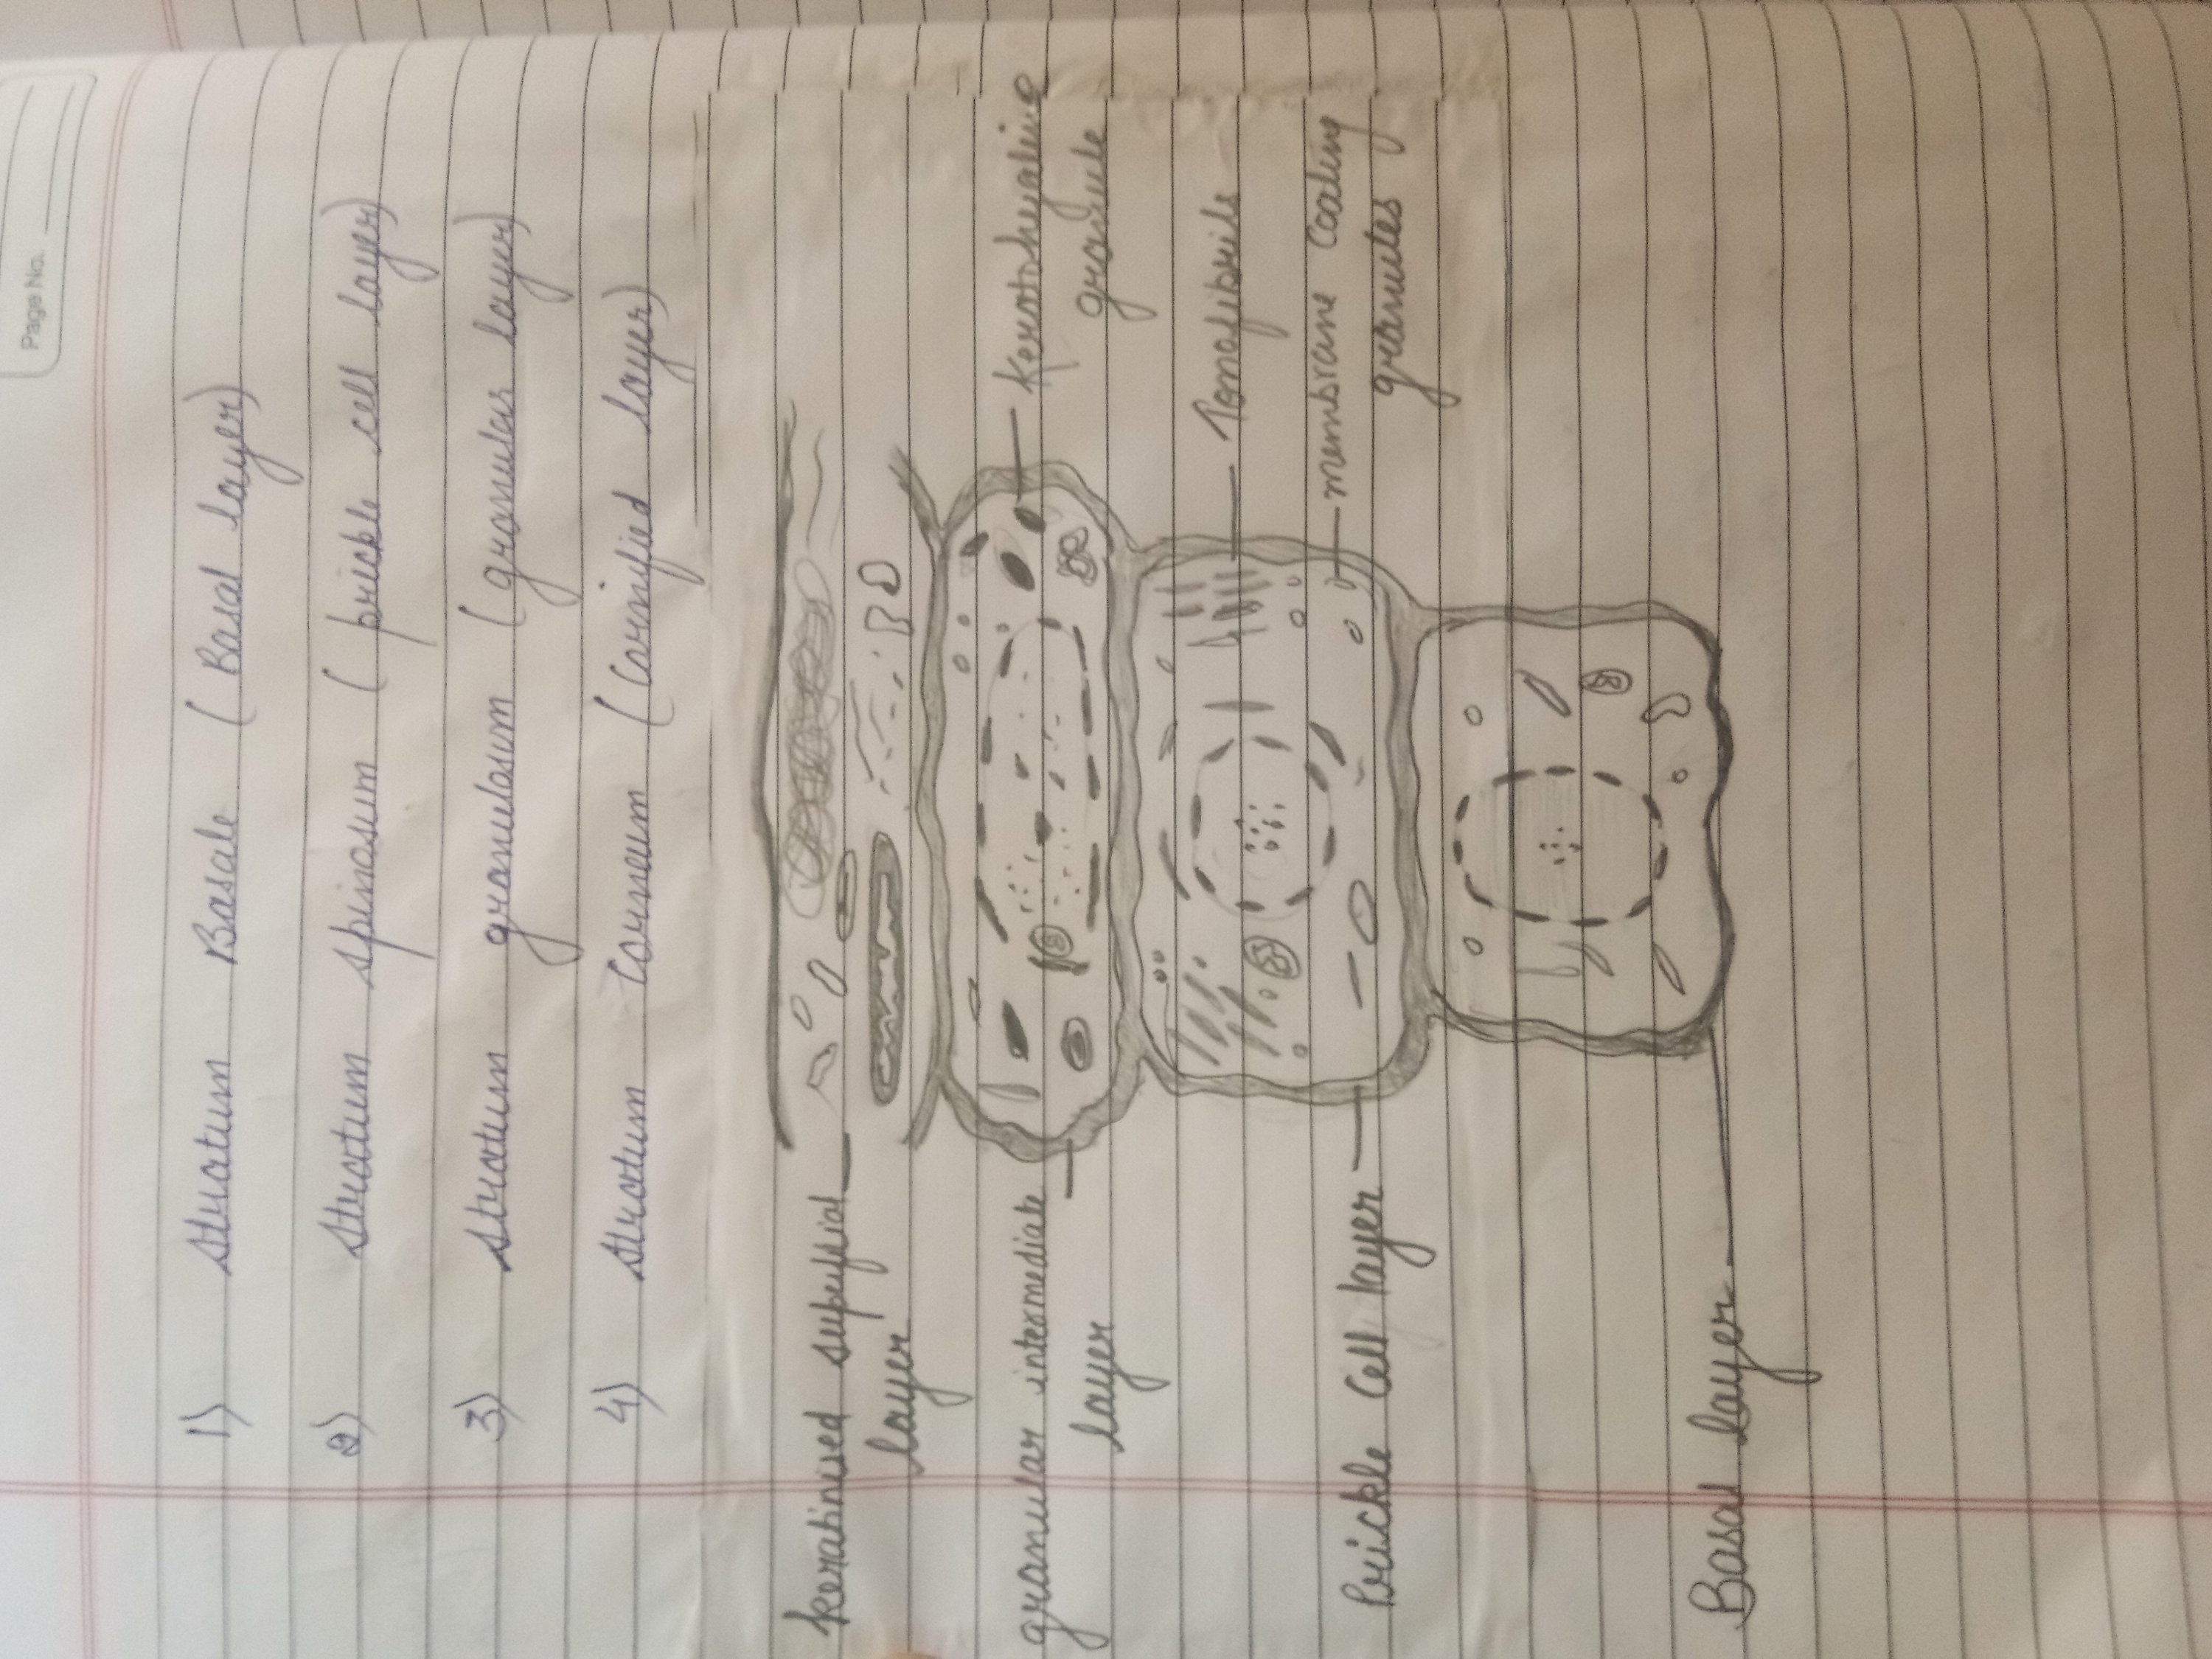 Page No.
1) Stratum Basale (Basal layer)
2) Stratum spinosum (prickle cell layer)
3) Stratum granulosum (granular layer)
4) Stratum Corneum (Cornified layer)
kerratinised superfsial
layer
granular intermediate
layer
Prickle Cell layer
Basal layer
Keratohyaline
granule
Tonofibrils
membrane Coating
granules